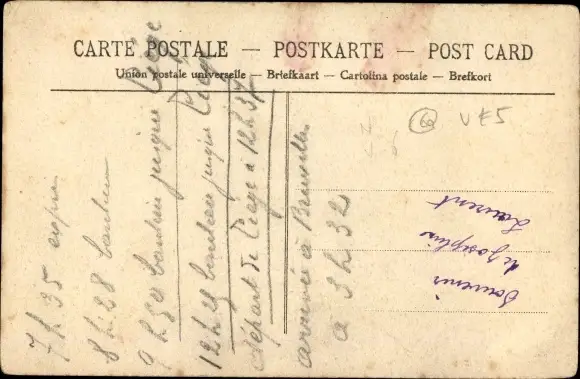 CARTE POSTALE — POSTKARTE — POST CARD
Union postale universelle — Briefkaart — Cartolina postale — Brefkort
VE5
7h 35
8h 28
9h 50 jusque Liège
12h 29 jusque Liège
départ de Liège à 12h 37
arrivée à Bruxelles
à 3h 32
Souvenir
de Joséphine
Laurent